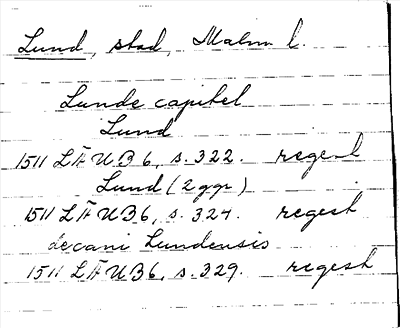 Lund, stad, Malm l.
Lunde capitel
Lund
1511 LÄUB 6, s. 322. regest
Lund (2 ggr)
1511 LÄUB6, s. 324. regest
decani Lundensis
1511 LÄUB6, s. 329. regest